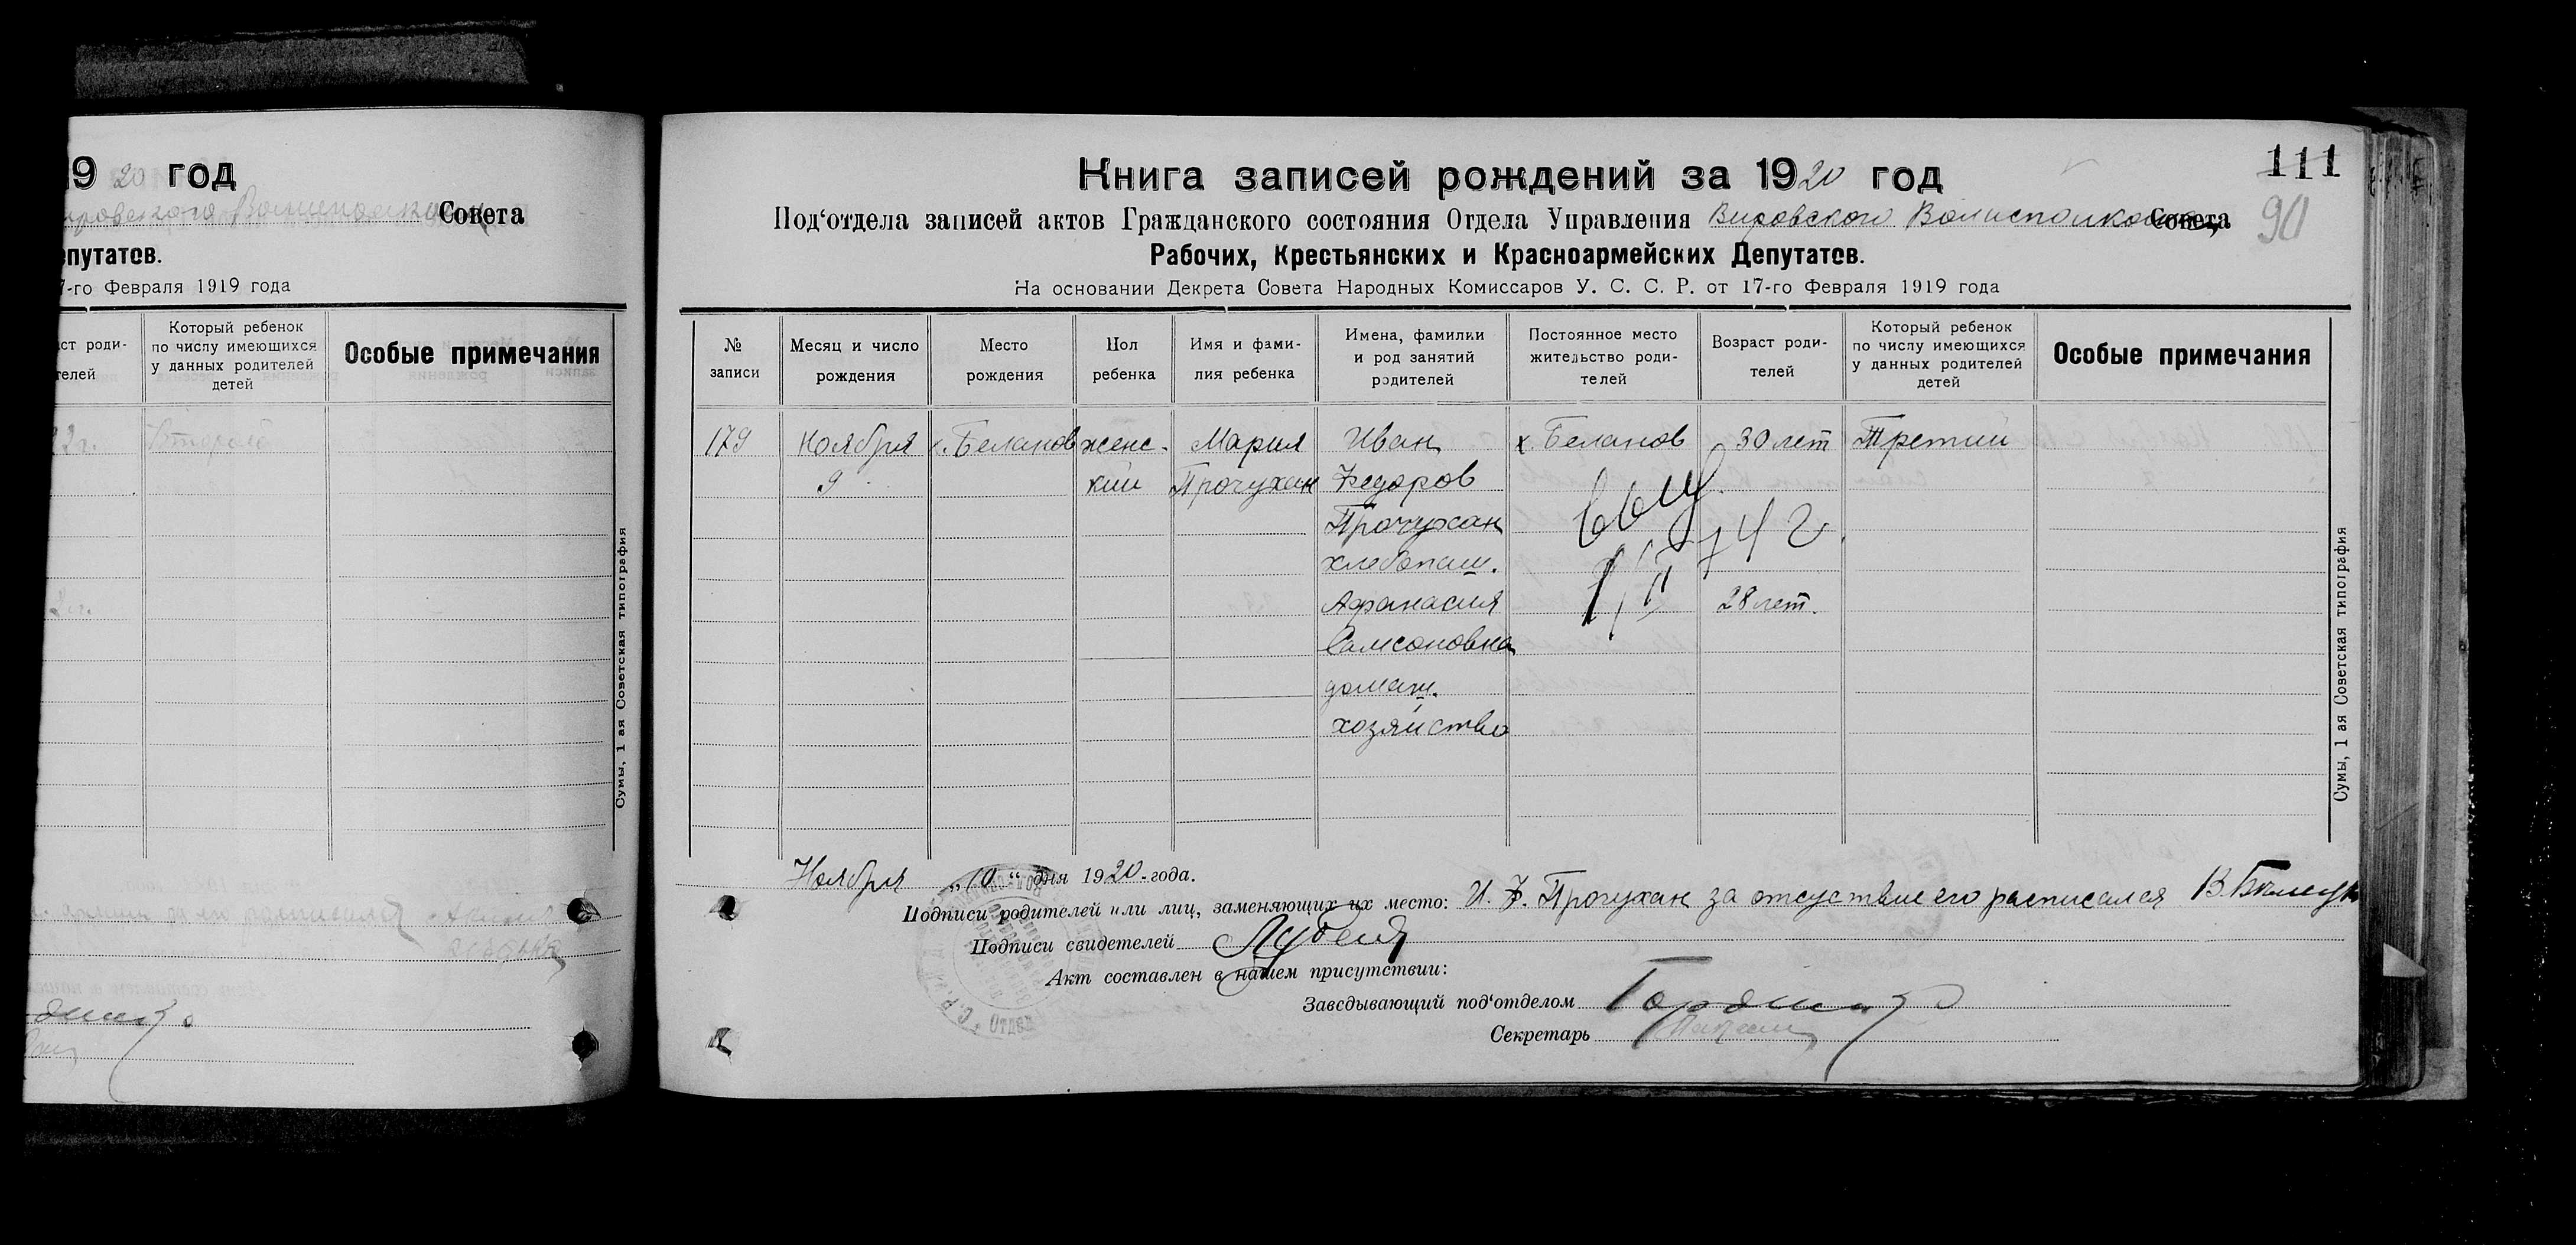 19 20 год
Совета
епутатов.
7-го Февраля 1919 года
ст роди-
телей
Который ребенок
по числу имеющихся
у данных родителей
детей
Особые примечания
22 г. Второй
Сумы, 1 ая Советская типография
111
90
Книга записей рождений за 1920 год
Под‘отдела записей актов Гражданского состояния Отдела Управления Вировского Волисполкома Совета
Рабочих, Крестьянских и Красноармейских Депутатов.
На основании Декрета Совета Народных Комиссаров У. С. С. Р. от 17-го Февраля 1919 года
№
записи
Месяц и число
рождения
Место
рождения
Пол
ребенка
Имя и фами-
лия ребенка
Имена, фамилии
и род занятий
родителей
Постоянное место
жительство роди-
телей
Возраст роди-
телей
Который ребенок
по числу имеющихся
у данных родителей
детей
Особые примечания
179 Ноября х. Беланов женс- Мария Иван х. Беланов 30 лет Третий
9 кий Прочухан Федоров
Прочухан
хлебопаш.
Афанасия 28 лет.
Самсоновна
домаш.
хозяйство
Сумы, 1 ая Советская типография
Ноября „10“ дня 1920-года.
Подписи родителей или лиц, заменяющих их место: И. Ф. Прочухан за отсуствие его росписался
Подписи свидетелей
Акт составлен в нашем присутствии:
Заведывающий под‘отделом
Секретарь